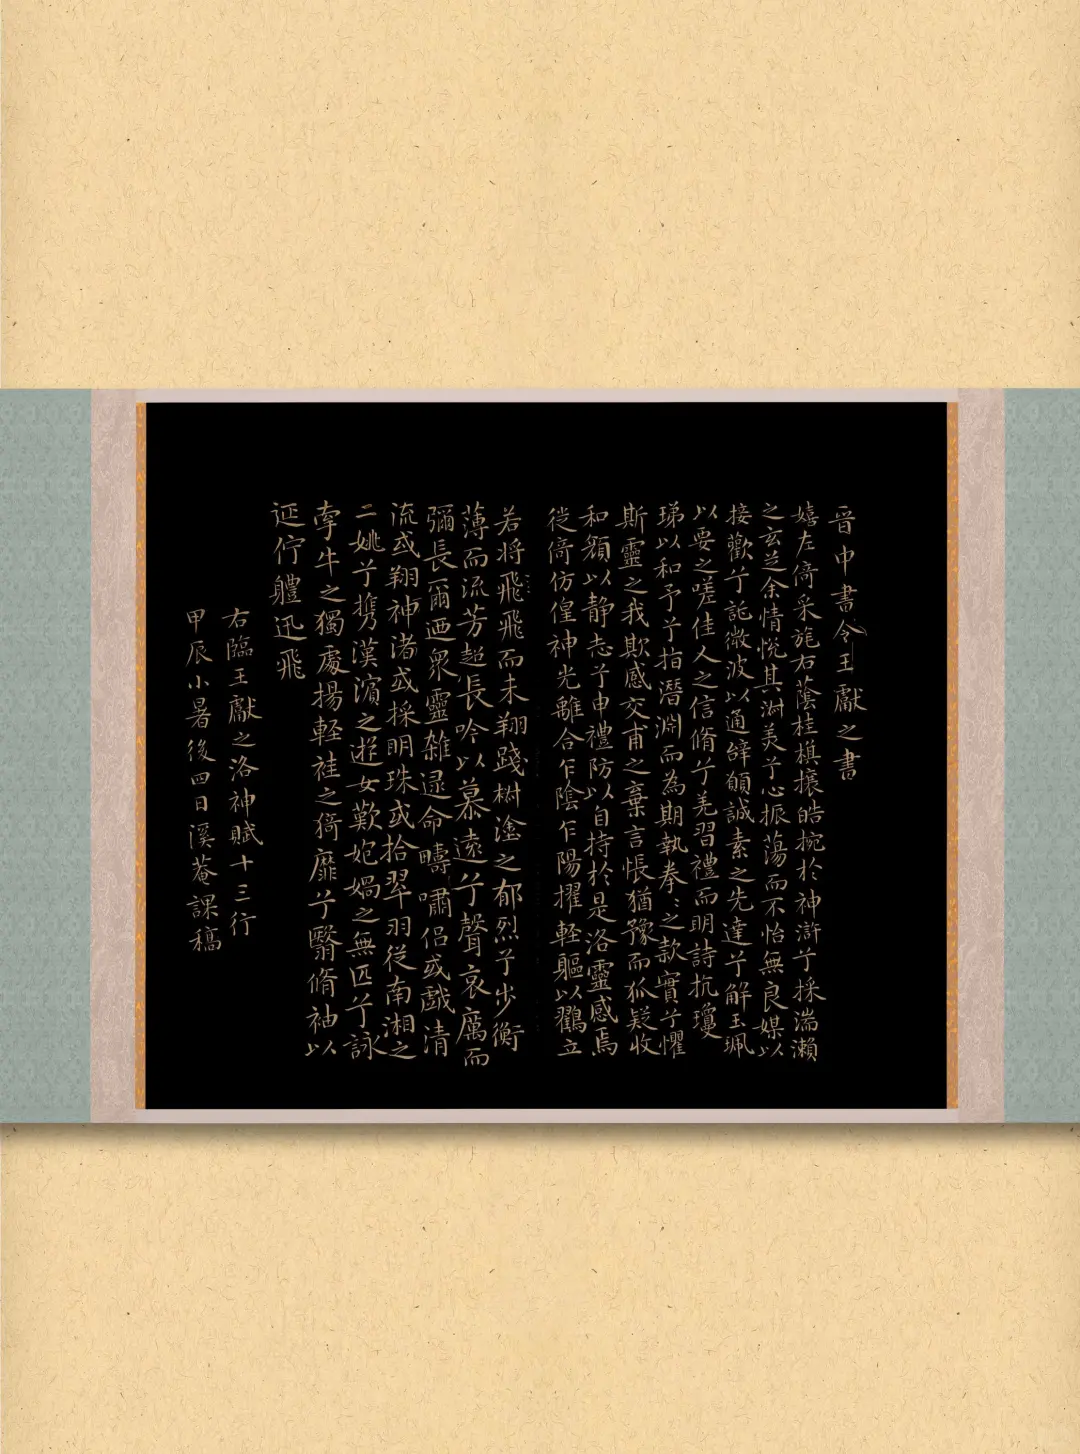 晉中書令王獻之書
嬉左倚采旄右蔭桂旗攘皓捥於神滸兮採湍瀨
之玄芝余情悅其淑美兮心振蕩而不怡無良媒以
接歡兮託微波以通辭願誠素之先達兮解玉珮
以要之嗟佳人之信脩兮羌習禮而明詩抗瓊
珶以和予兮指潛淵而為期執拳〻之款實兮懼
斯靈之我欺感交甫之棄言悵猶豫而狐疑收
和顏以靜志兮申禮防以自持於是洛靈感焉
徙倚仿偟神光離合乍陰乍陽擢輕軀以鸖立
若將飛飛而未翔踐椒塗之郁烈兮步衡
薄而流芳超長吟以慕遠兮聲哀厲而
彌長爾迺眾靈雜遝命疇嘯侶或戲清
流或翔神渚或採明珠或拾翠羽從南湘之
二姚兮攜漢濱之遊女歎妃媧之無匹兮詠
牽牛之獨處揚輕袿之猗靡兮翳脩袖以
延佇軆迅飛
右臨王獻之洛神賦十三行
甲辰小暑後四日溪菴課稿